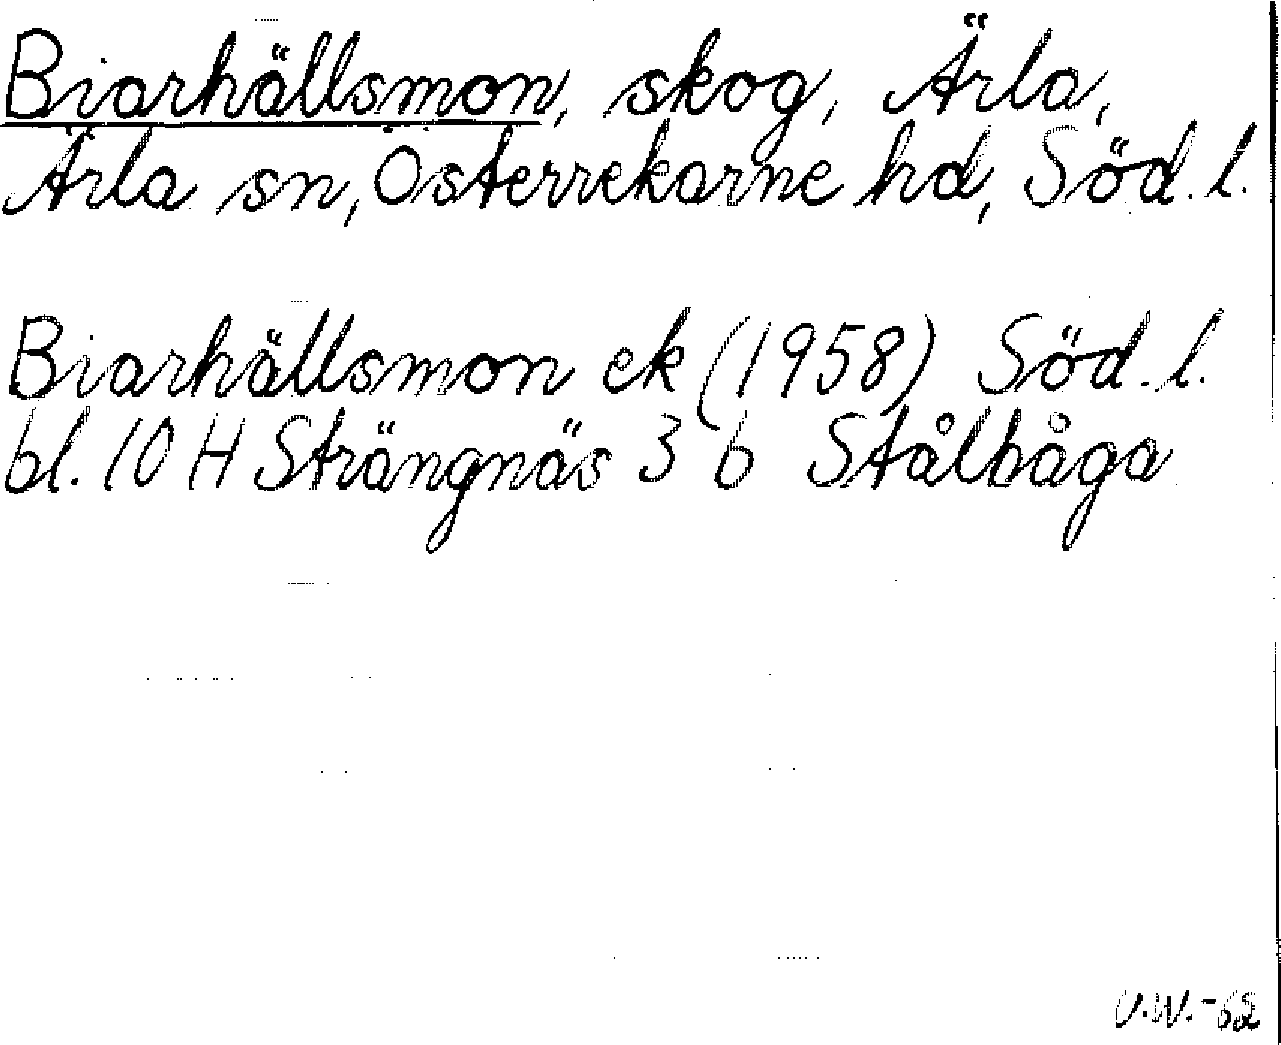 Biarhällsmon, skog, Ärla,
Ärla sn, Österrekarne hd, Söd. l.
Biarhällsmon ek (1958) Söd. l.
bl. 10 H Strängnäs 3 b Stålbåga
V.W. -62